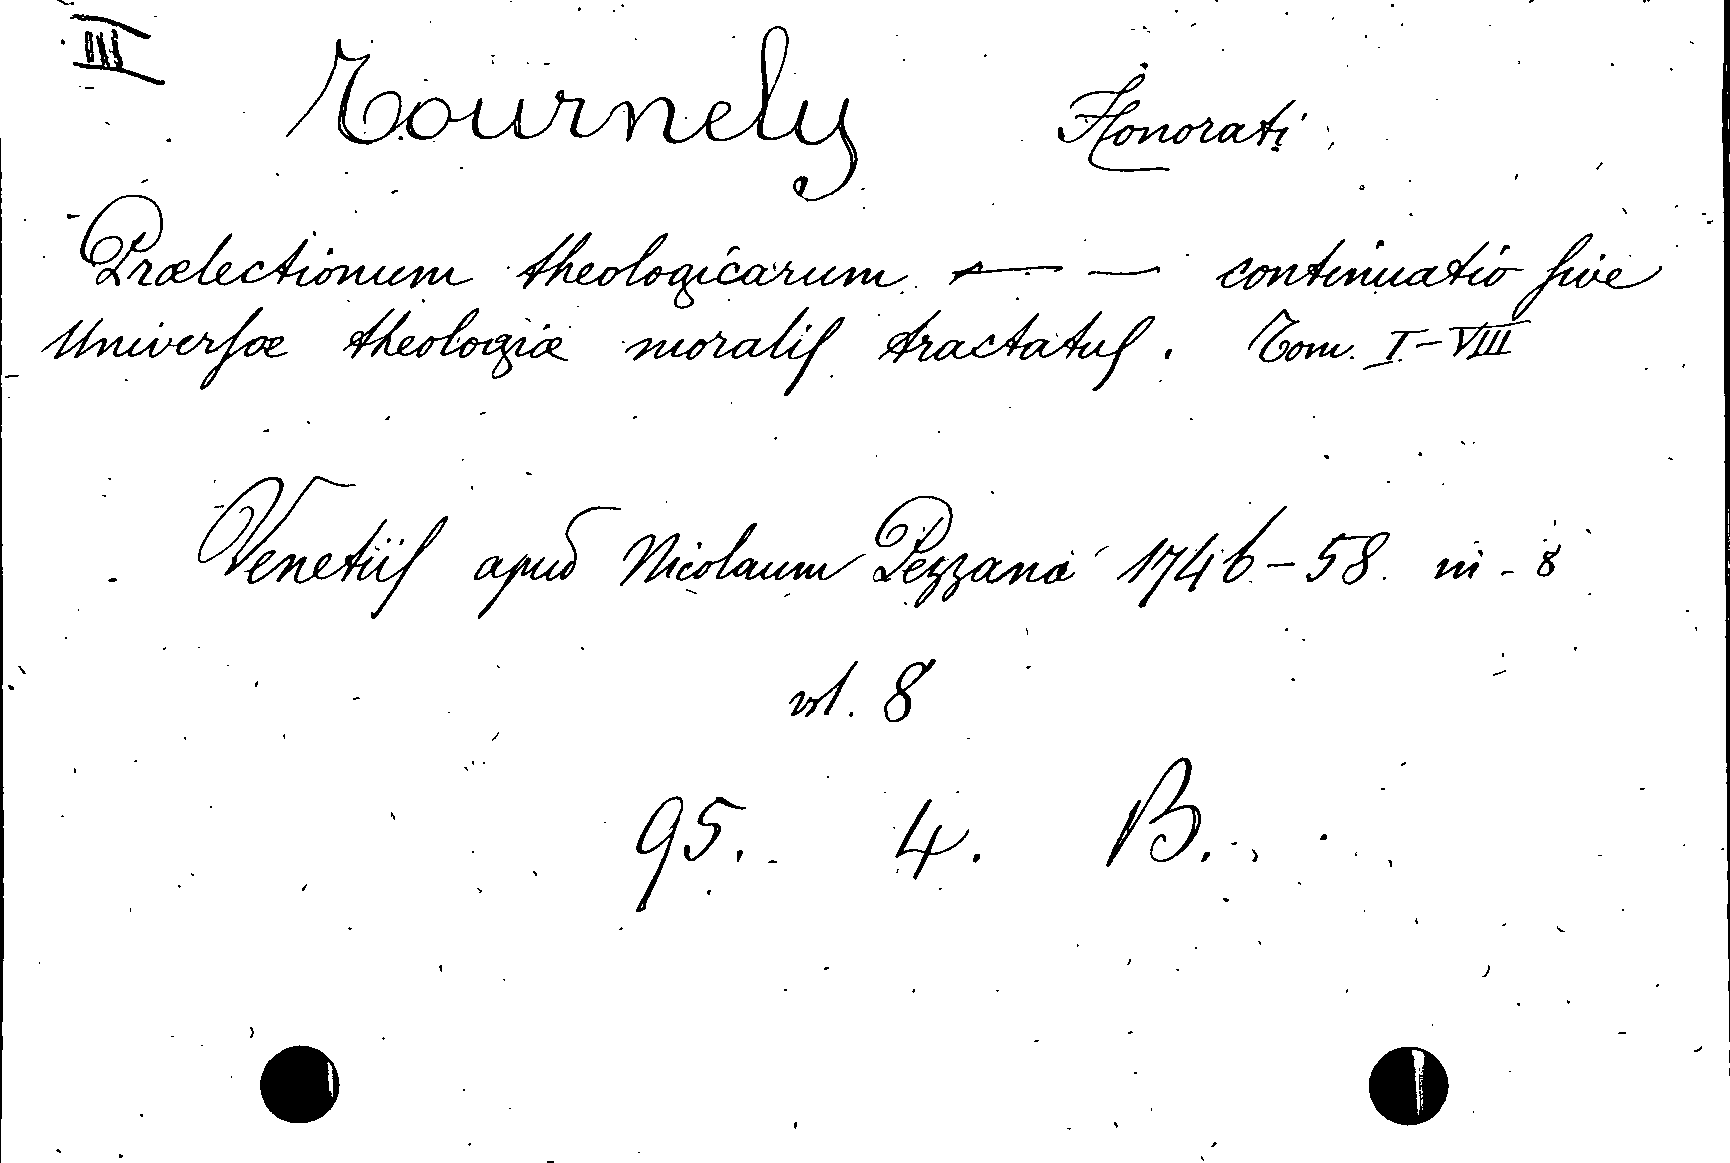 III
Tournely Honorati
Prælectionum theologicarum — — continuatio sive
Universæ theologiæ moralis tractatus. Tom. I-VIII
Venetiis apud Nicolaum Pezzana 1746-58. in-8
vol. 8
95. 4. B.